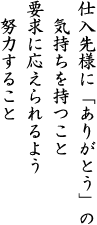 仕入先様に「ありがとう」の
気持ちを持つこと
要求に応えられるよう
努力すること